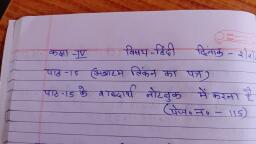 कक्षा-IV विषय-हिंदी दिनांक-2/2/
पाठ-15 (अब्राहम लिंकन का पत्र)
पाठ-15 के शब्दार्थ नोटबुक में करना है
(पेज॰ न॰ - 115)